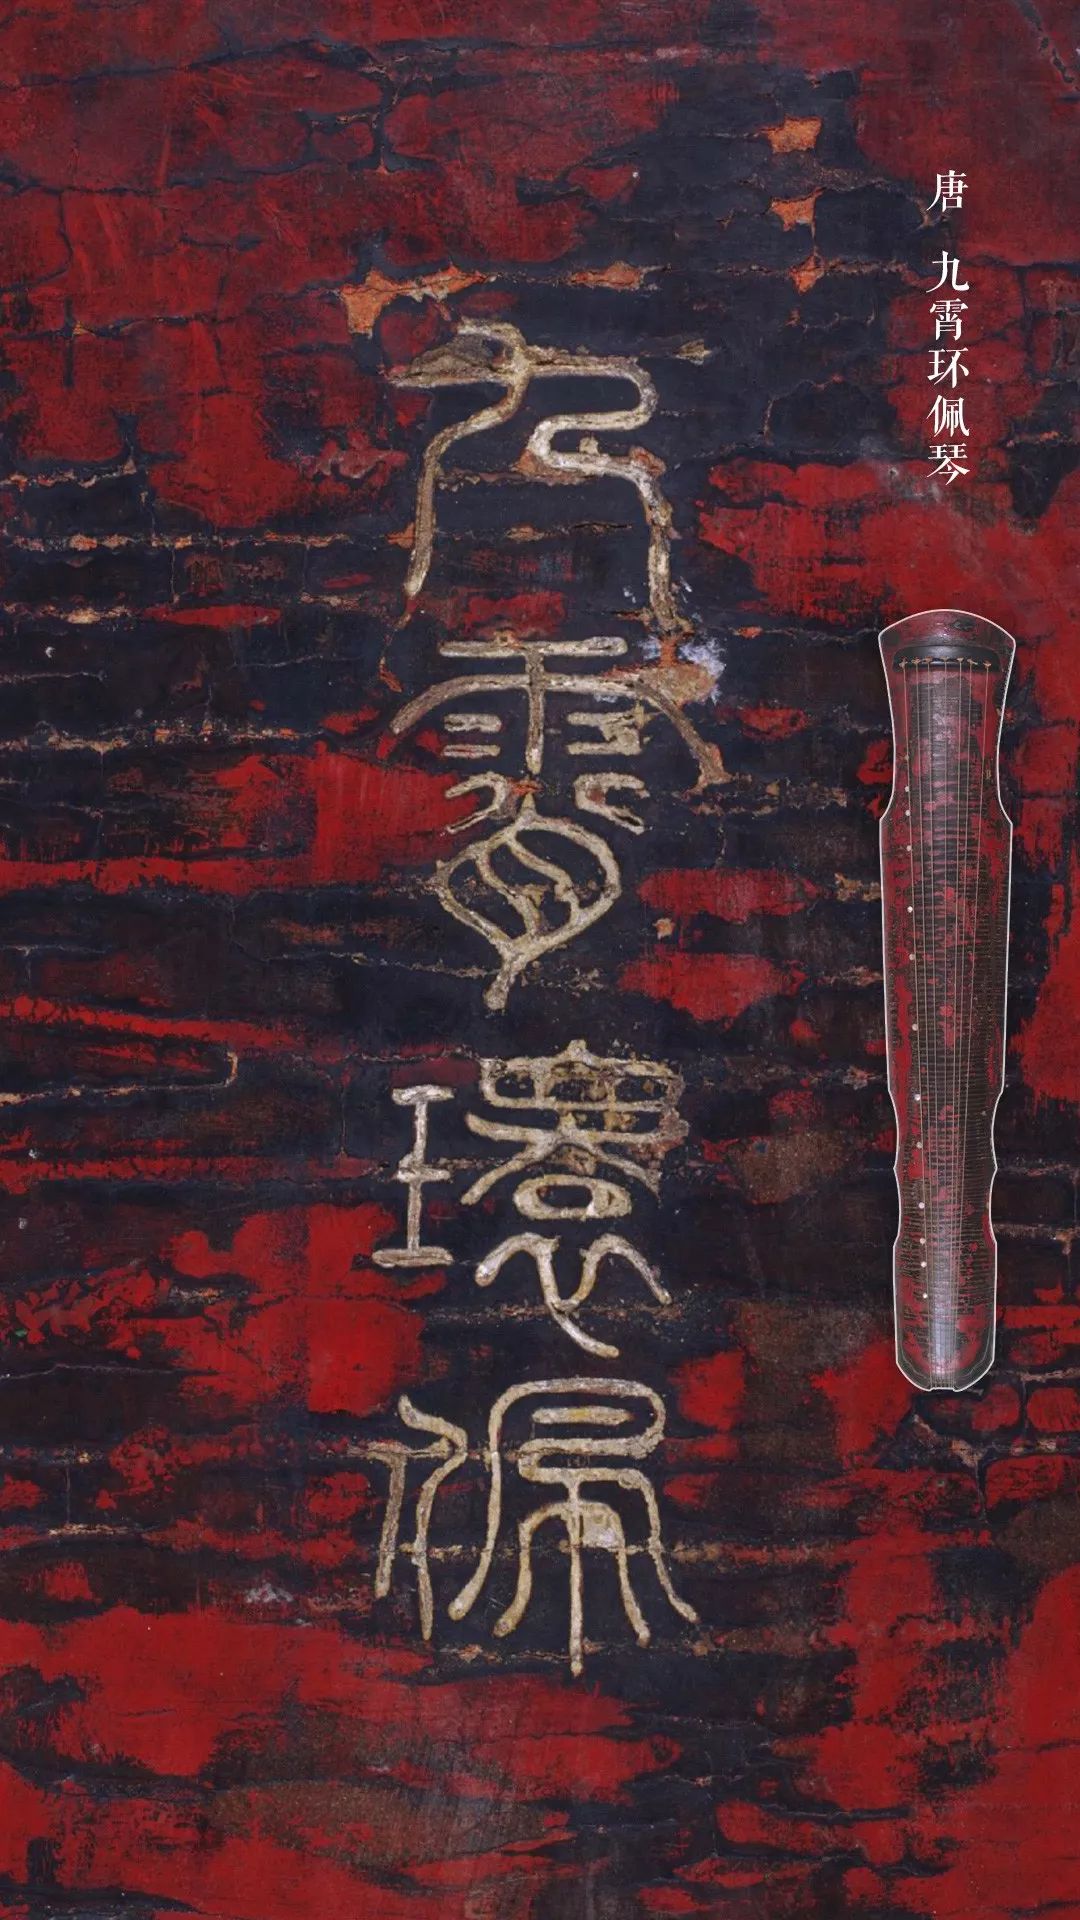 唐 九霄环佩琴
九霄環佩